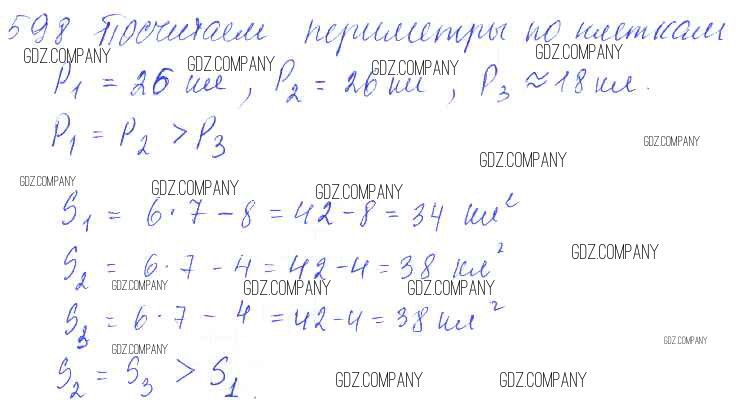 598 Посчитаем периметры по клеткам
GDZ.COMPANY GDZ.COMPANY GDZ.COMPANY GDZ.COMPANY
P₁ = 26 кл, P₂ = 26 кл, P₃ ≈ 18 кл.
P₁ = P₂ > P₃
GDZ.COMPANY GDZ.COMPANY
GDZ.COMPANY GDZ.COMPANY GDZ.COMPANY
S₁ = 6·7 - 8 = 42 - 8 = 34 кл²
S₂ = 6·7 - 4 = 42 - 4 = 38 кл²
GDZ.COMPANY
GDZ.COMPANY GDZ.COMPANY GDZ.COMPANY
S₃ = 6·7 - 4 = 42 - 4 = 38 кл²
GDZ.COMPANY GDZ.COMPANY
S₂ = S₃ > S₁.
GDZ.COMPANY GDZ.COMPANY